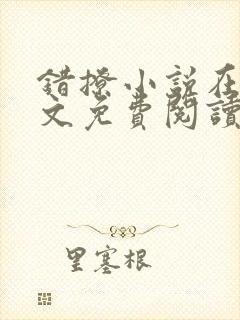 错撩小说在
文免费阅读
里塞根